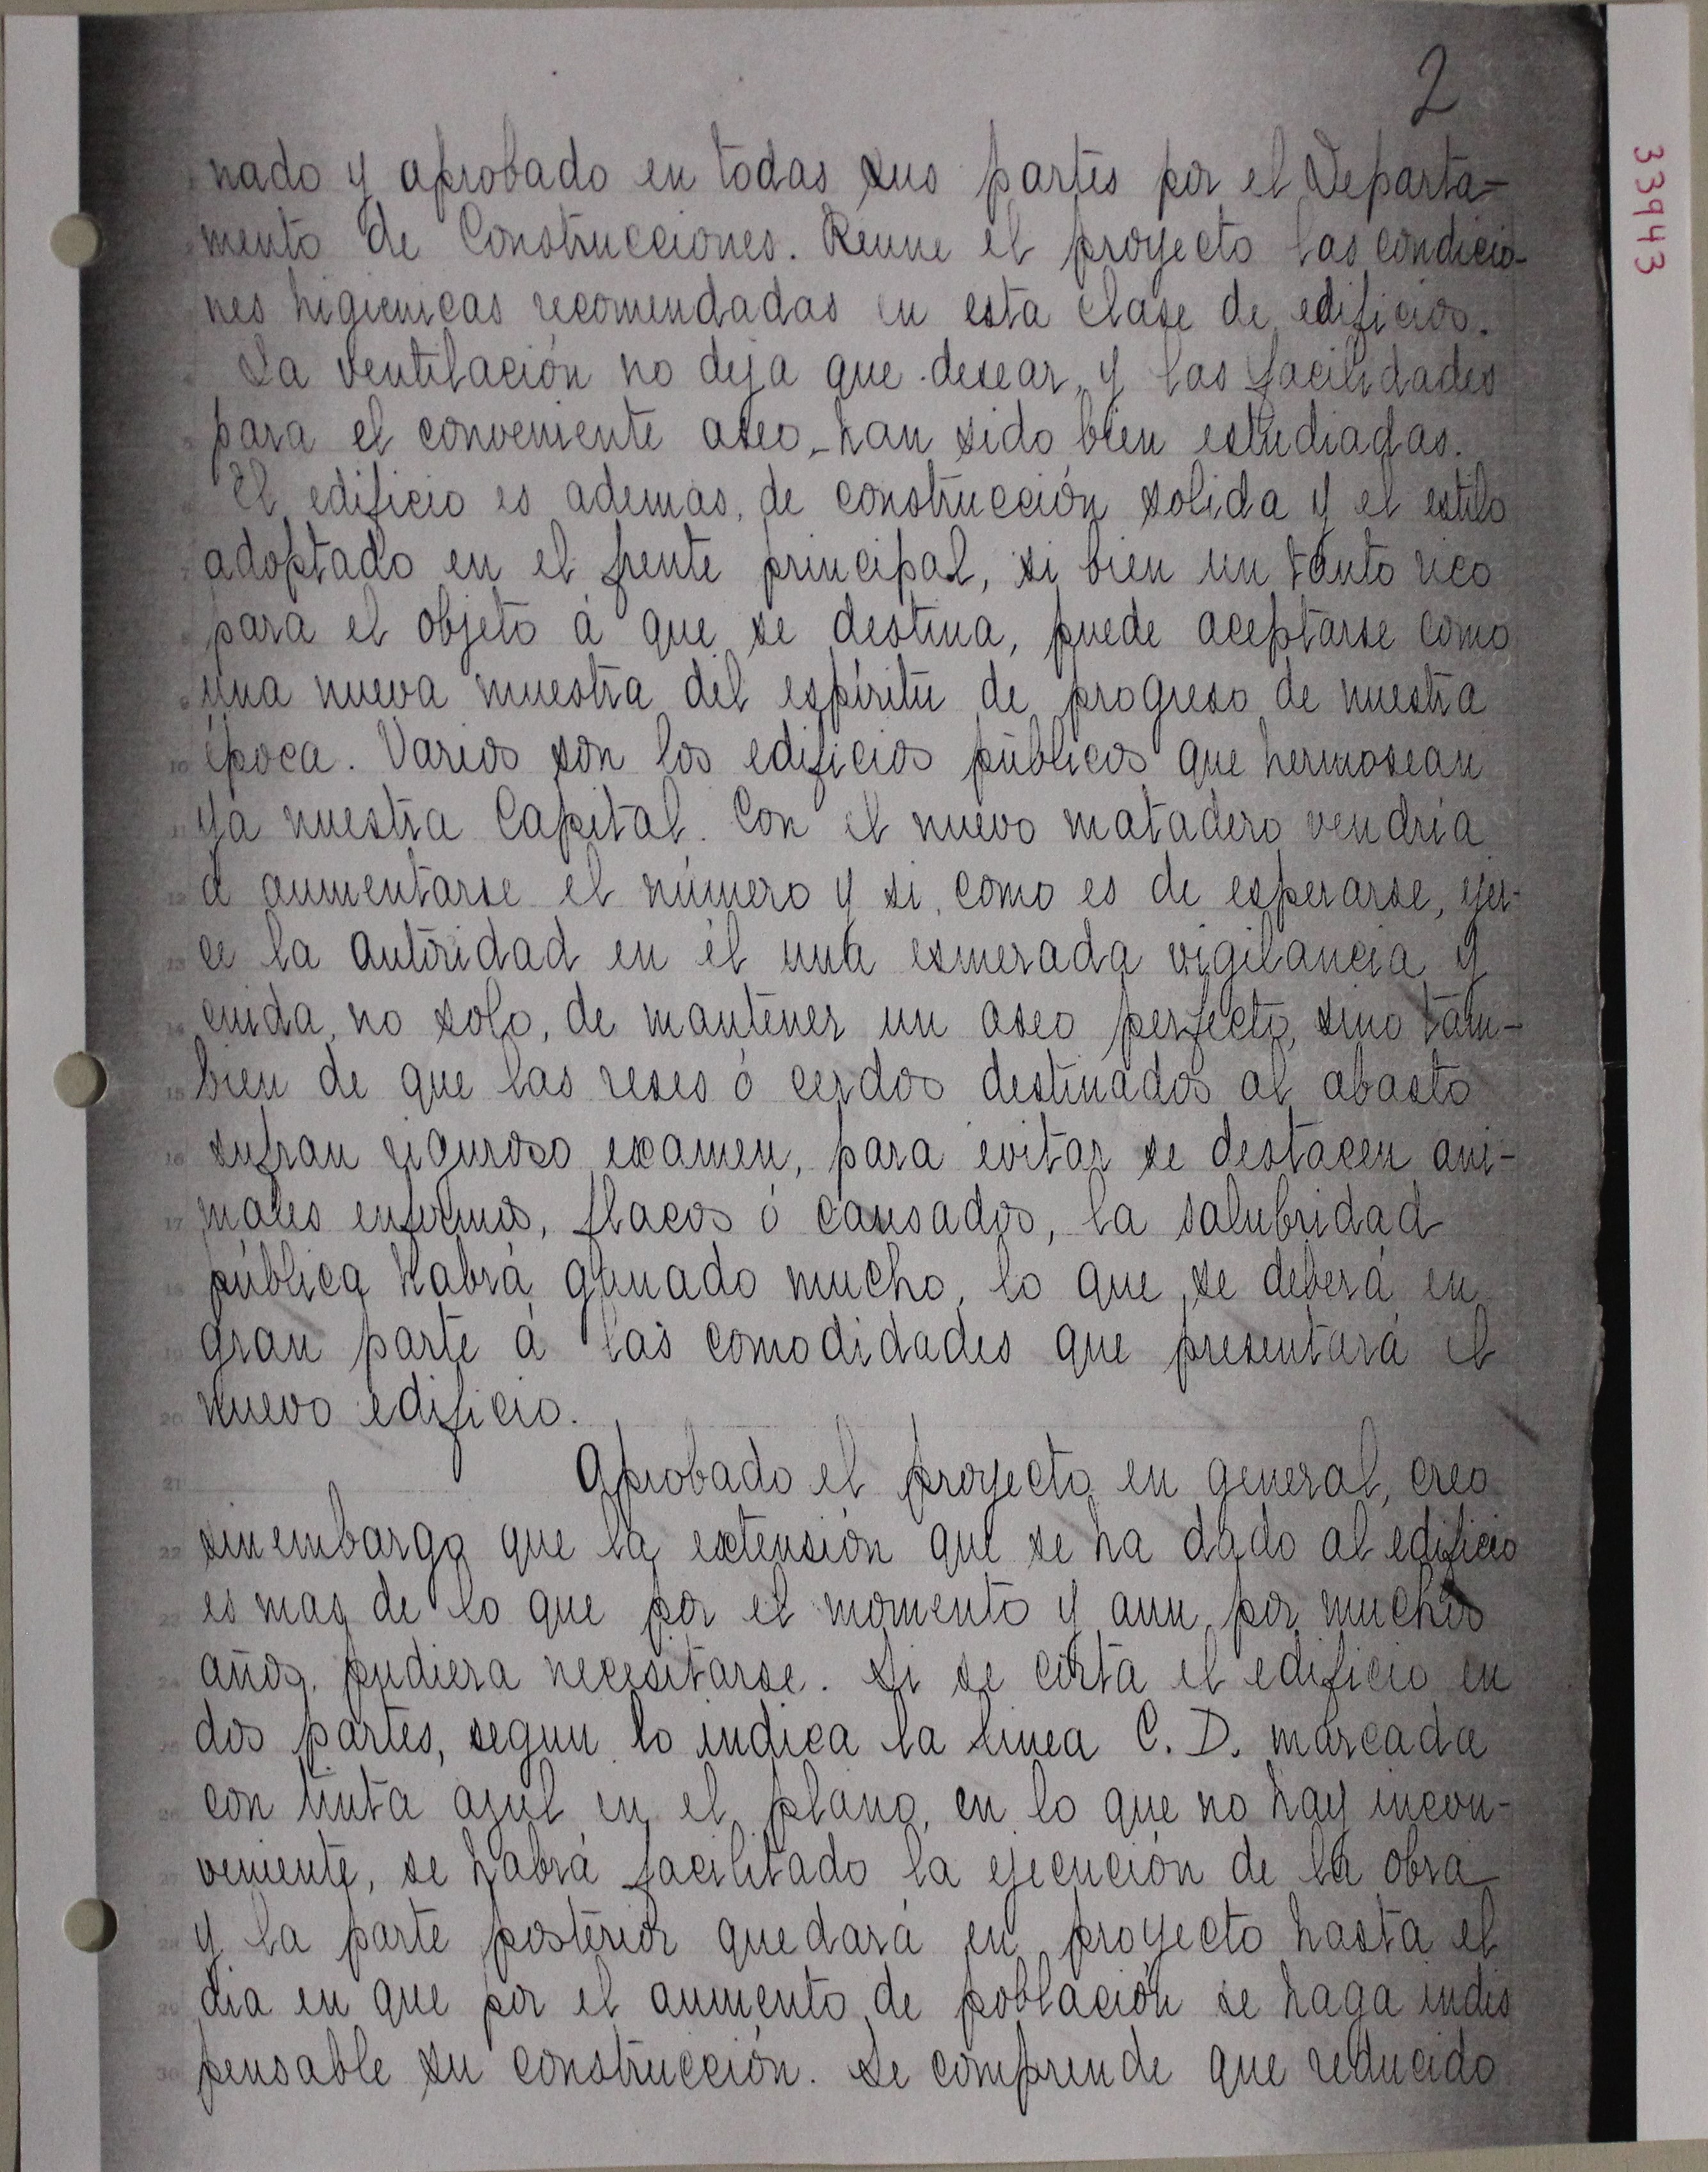 2
33943
nado y aprobado en todas sus partes por el Departa-
mento de Construcciones. Reune el proyecto las condicio-
nes higienicas recomendadas en esta clase de edificios.
La ventilación no deja que desear, y las facilidades
para el conveniente aseo, han sido bien estudiadas.
El edificio es ademas, de construcción solida y el estilo
adoptado en el frente principal, si bien un tanto rico
para el objeto á que se destina, puede aceptarse como
una nueva muestra del espíritu de progreso de nuestra
época. Varios son los edificios públicos que hermosean
ya nuestra Capital. Con el nuevo matadero vendría
á aumentarse el número y si, como es de esperarse, ejer-
ce la autoridad en él una esmerada vigilancia y
cuida, no solo, de mantener un aseo perfecto, sino tam-
bien de que las reses ó cerdos destinados al abasto
sufran riguroso examen, para evitar se destacen ani-
males enfermos, flacos ó cansados, la salubridad
pública habrá ganado mucho, lo que se deberá en
gran parte á las comodidades que presentará el
nuevo edificio.
Aprobado el proyecto en general, creo
sinembargo que la extensión que se ha dado al edificio
es mas de lo que por el momento y aun por muchos
años, pudiera necesitarse. Si se corta el edificio en
dos partes, segun lo indica la linea C. D. marcada
con tinta azul en el plano, en lo que no hay incon-
veniente, se habrá facilitado la ejecución de la obra
y la parte posterior quedará en proyecto hasta el
dia en que por el aumento de población se haga indis
pensable su construcción. Se comprende que reducido